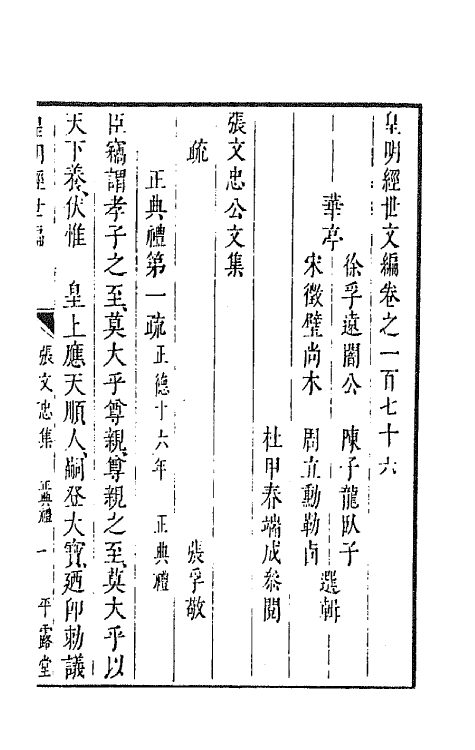 皇明經世文編卷之一百七十六
華亭
徐孚遠闇公　陳子龍臥子
宋徵璧尚木　周立勳勒卣　選輯
杜甲春端成叅閱
張文忠公文集
疏
張孚敬
正典禮第一疏　正德十六年　正典禮
臣竊謂孝子之至、莫大乎尊親、尊親之至、莫大乎以
天下養、伏惟　皇上應天順人、嗣登大寶、廼卽勅議
皇明經世編　張文忠集　典禮　一　平露堂